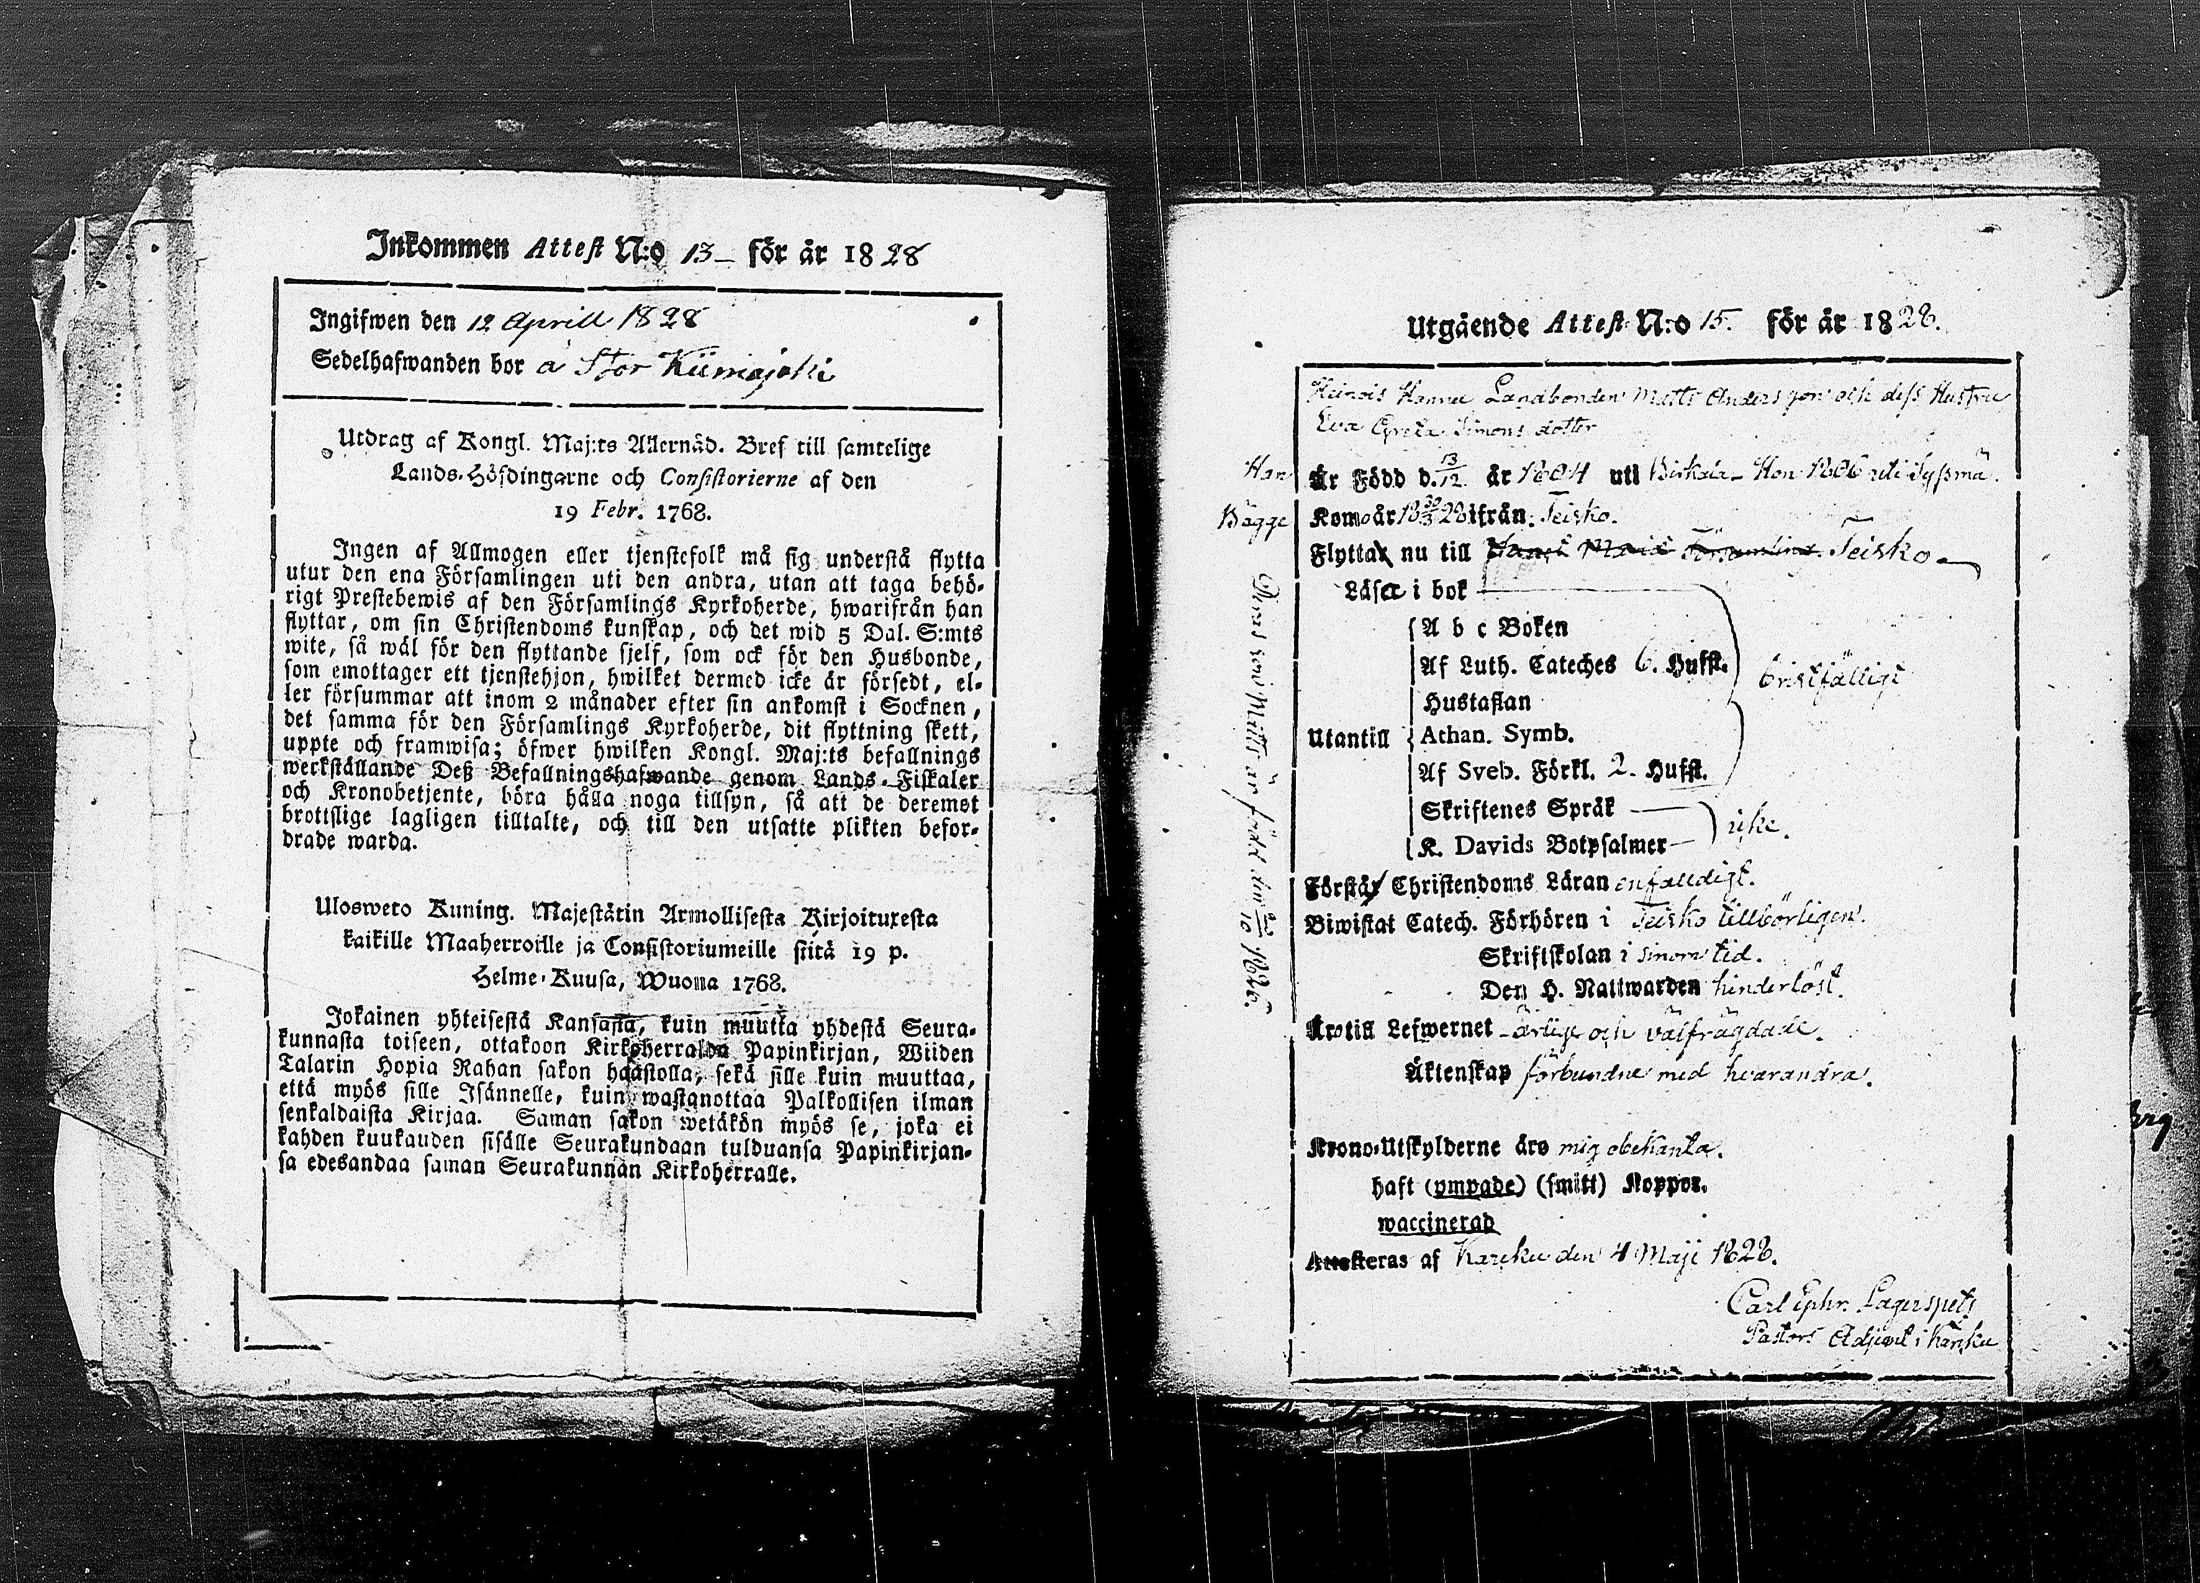 Inkommen Attest N:o 13 – för år 1828
Ingifwen den 12 Aprill 1828
Sedelhafwanden bor å Stor Kiimajoki
Utdrag af Kongl. Maj:ts Allernåd. Bref till samtelige
Lands-Höfdingarne och Consistorierne af den
19 Febr. 1768.
Ingen af Allmogen eller tjenstefolk må sig understå flytta
utur den ena Församlingen uti den andra, utan att taga behö-
rigt Prestebewis af den Församlings Kyrkoherde, hwarifrån han
flyttar, om sin Christendoms kunskap, och det wid 5 Dal. S:mts
wite, så wäl för den flyttande sjelf, som ock för den Husbonde,
som emottager ett tjenstehjon, hwilket dermed icke är försedt, el-
ler försummar att inom 2 månader efter sin ankomst i Socknen,
det samma för den Församlings Kyrkoherde, dit flyttning skett,
uppte och framwisa; öfwer hwilken Kongl. Maj:ts befallnings
werkställande Deß Befallningshafwande genom Lands-Fiskaler
och Kronobetjente, böra hålla noga tillsyn, så att de deremot
brottslige lagligen tilltalte, och till den utsatte plikten befor-
drade warda.
Ulosweto Kuning. Majestätin Armollisesta Kirjoituxesta
kaikille Maaherroille ja Consistoriumeille siitä 19 p.
Helme-Kuusa, Wuonna 1768.
Jokainen yhteisestä Kansasta, kuin muutta yhdestä Seura-
kunnasta toiseen, ottakoon Kirkoherralda Papinkirjan, Wiiden
Talarin Hopia Rahan sakon haastolla, sekä sille kuin muuttaa,
että myös sille Isännelle, kuin wastanottaa Palkollisen ilman
senkaldaista Kirjaa. Saman sakon wetäkön myös se, joka ei
kahden kuukauden sisälle Seurakundaan tulduansa Papinkirjan-
sa edesandaa saman Seurakunnan Kirkoherralle.
Utgående Attest N:o 15. för år 1828.
Landbonden Matts Andersson och dess Hustru
Eva Greta Simons dotter
Han Är Född d. 13/12 år 1804 uti Birkala – Hon 1806 uti Tyssmä.
Bägge Komo år 18 30/3 28 ifrån Teisko.
Flytta nu till Teisko
Läsa i bok
A b c Boken
Af Luth. Cateches 6. Hufst. bristfälligt
Hustaflan
Utantill Athan. Symb.
Af Sveb. Förkl. 2. Hufst.
Skriftenes Språk
K. Davids Botpsalmer icke.
Förstå Christendoms Läran enfalldigt.
Biwistat Catech. Förhören i Teisko tillbörligen.
Skriftskolan i sinom tid.
Den H. Nattwarden hinderlöst.
Äro till Lefwernet ärlige och välfrägdade.
Äktenskap förbundne med hvarandra.
Krono-Utskylderne äro mig obekanta.
haft (ympade) (smitt) Koppor.
waccinerad
Attesteras af Karcku den 4 Maji 1828.
Carl Ephr. Lagerspets
Pastors Adjunct i Karcku
Deras son Matts är född den 20/10 1826.